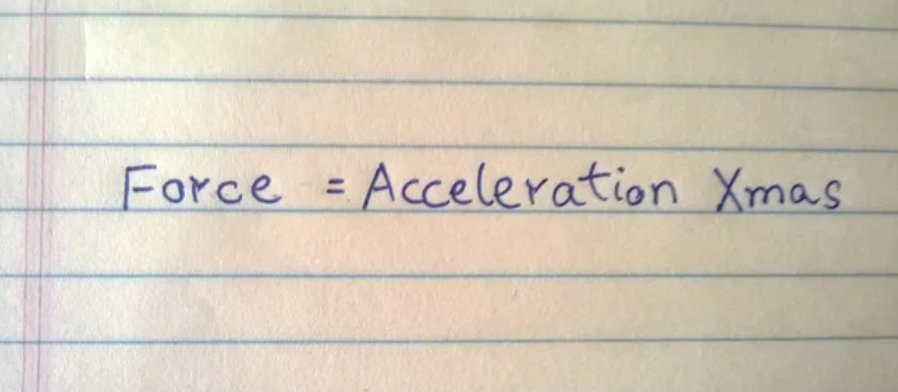 Force = Acceleration Xmas